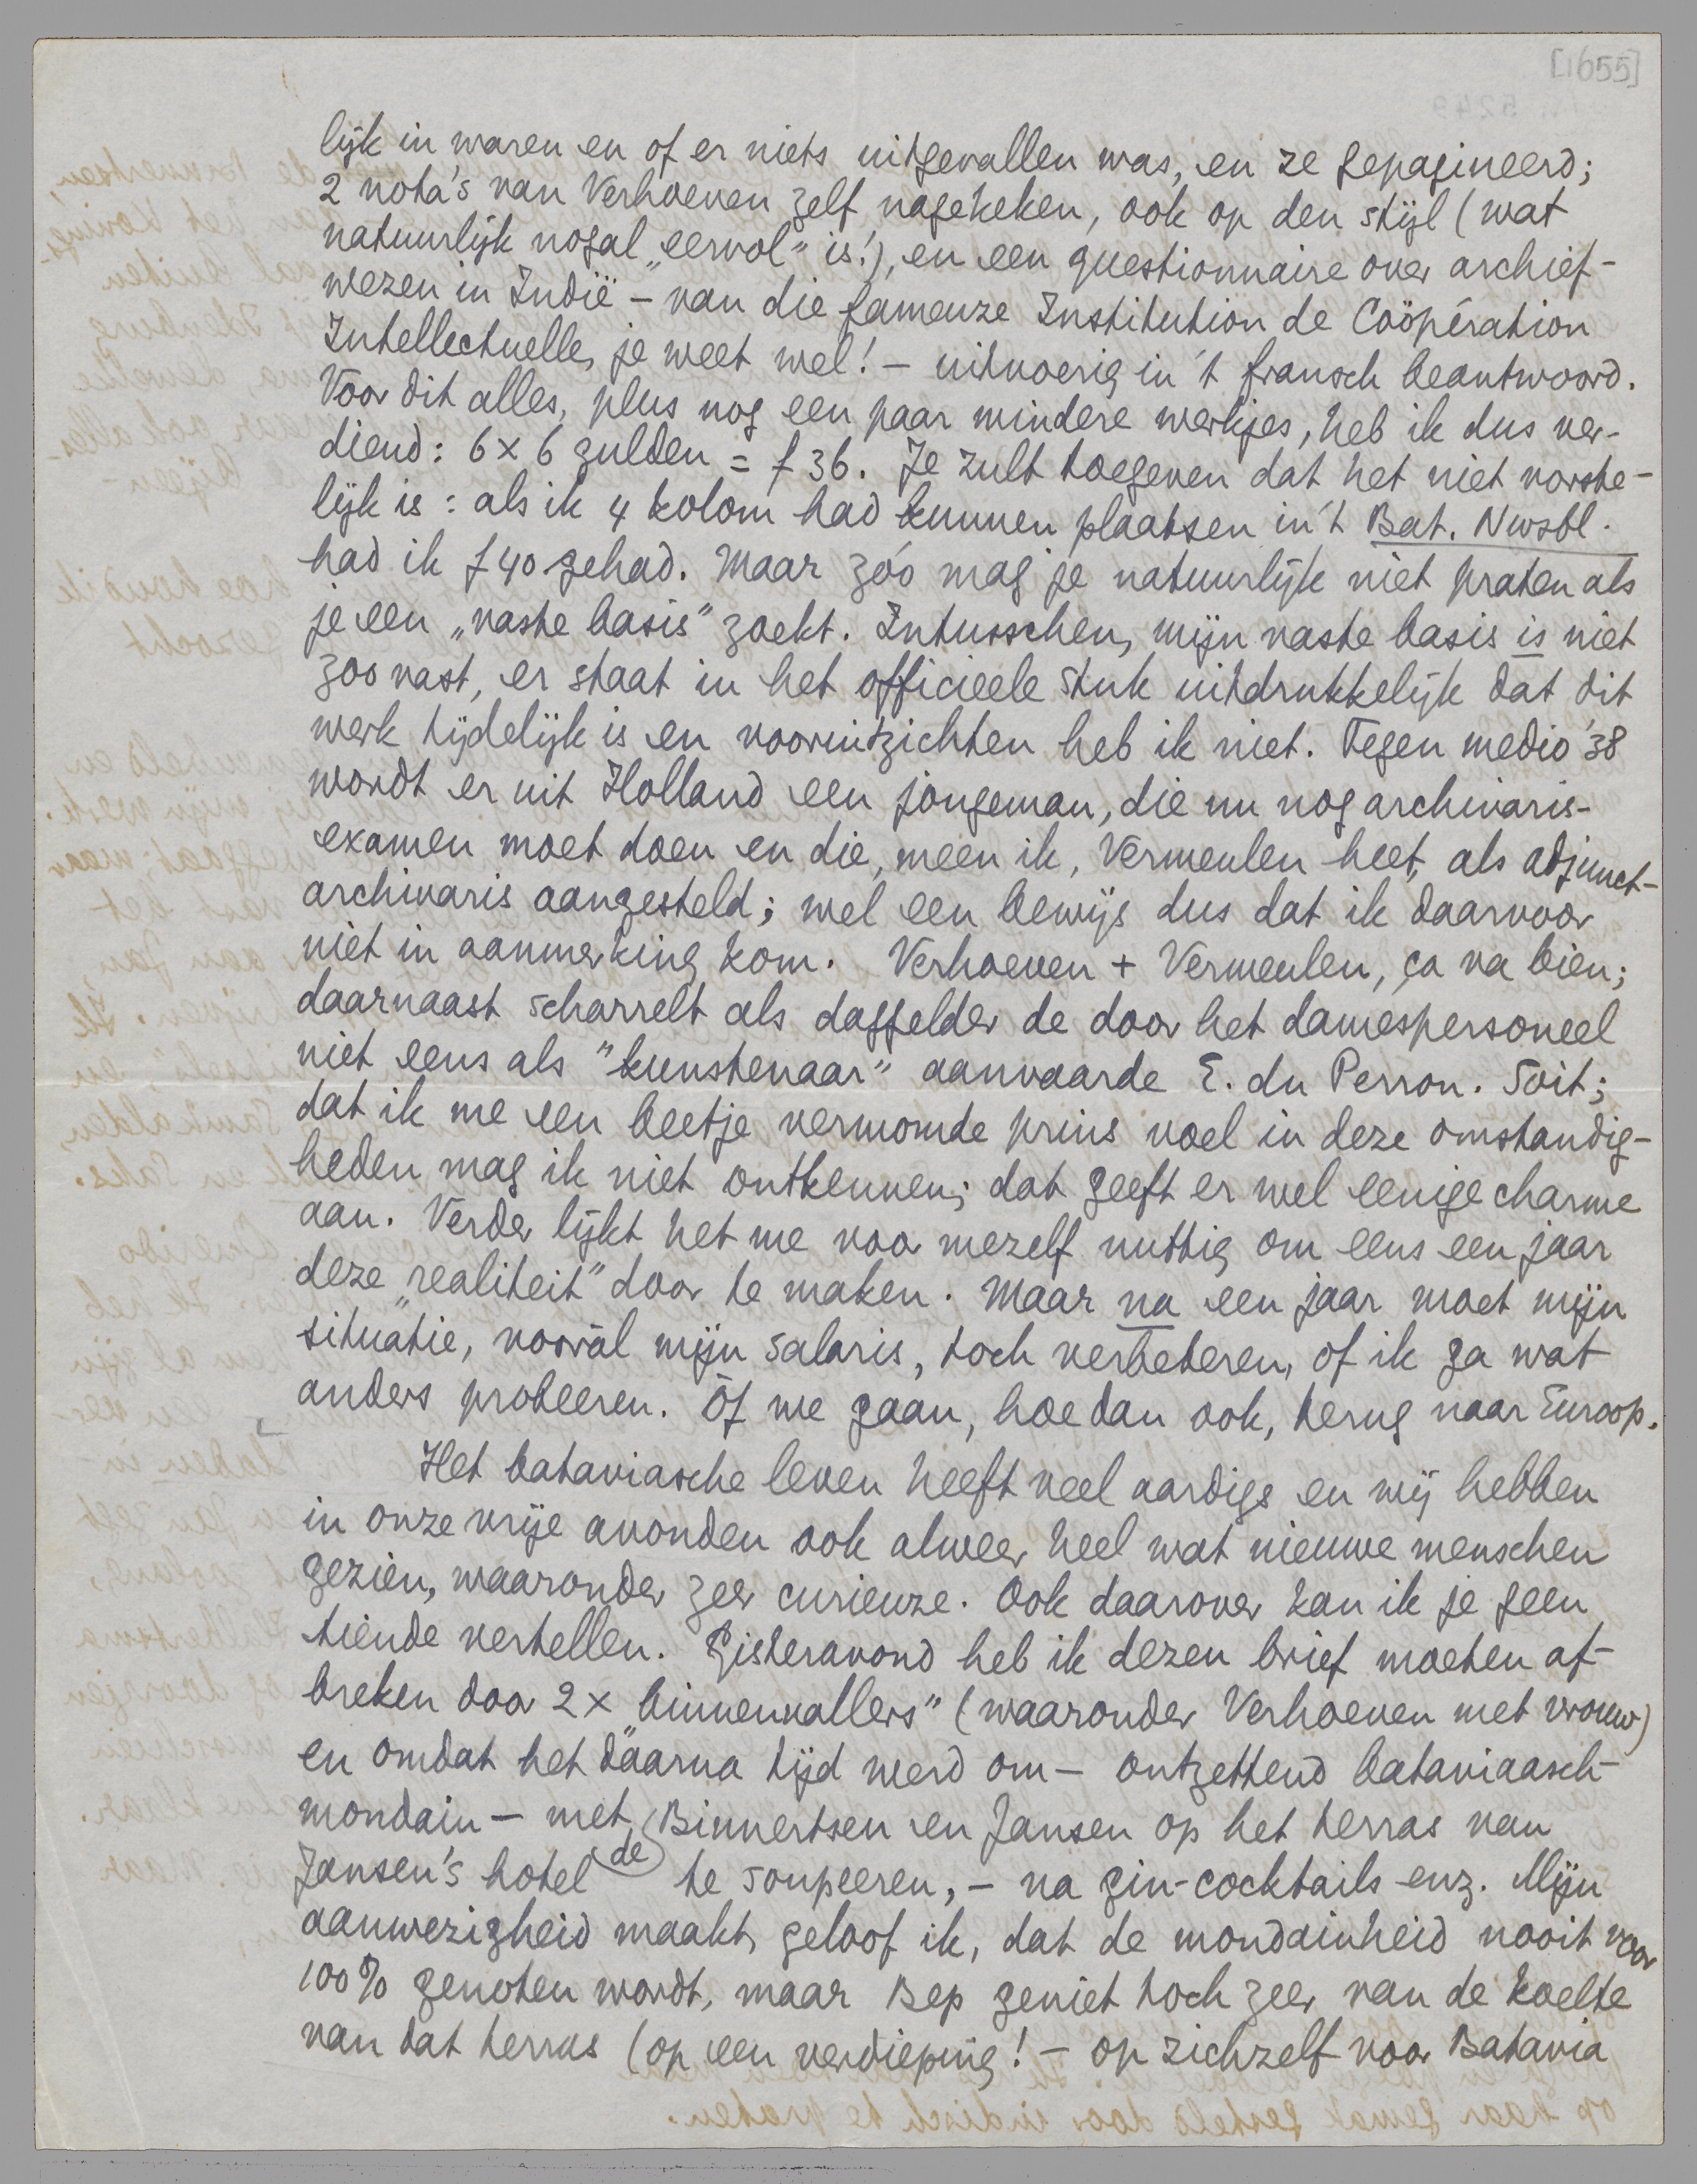 [1655]
lijk in waren en of er niets uitgevallen was, en ze gepagineerd;
2 nota's van Verhoeven zelf nagekeken, ook op den stijl (wat
natuurlijk nogal „eervol" is!), en een questionnaire over archief-
wezen in Indië – van die fameuze Institution de Coöpération
Intellectuelle, je weet wel! – uitvoerig in 't fransch beantwoord.
Voor dit alles, plus nog een paar mindere werkjes, heb ik dus ver-
diend: 6 x 6 gulden = f 36. Je zult toegeven dat het niet vorste-
lijk is: als ik 4 kolom had kunnen plaatsen in 't Bat. Nwsbl.
had ik f 40 gehad. Maar zóó mag je natuurlijk niet praten als
je een „vaste basis" zoekt. Intusschen, mijn vaste basis is niet
zoo vast, er staat in het officieele stuk uitdrukkelijk dat dit
werk tijdelijk is en vooruitzichten heb ik niet. Tegen medio '38
wordt er uit Holland een jongeman, die nu nog archivaris-
examen moet doen en die, meen ik, Vermeulen heet, als adjunct-
archivaris aangesteld; wel een bewijs dus dat ik daarvoor
niet in aanmerking kom. Verhoeven + Vermeulen, ça va bien;
daarnaast scharrelt als daggelder de door het damespersoneel
niet eens als "kunstenaar" aanvaarde E. du Perron. Soit;
dat ik me een beetje vermomde prins voel in deze omstandig-
heden mag ik niet ontkennen; dat geeft er wel eenige charme
aan. Verder lijkt het me voor mezelf nuttig om eens een jaar
deze „realiteit" door te maken. Maar na een jaar moet mijn
situatie, vooral mijn salaris, toch verbeteren, of ik ga wat
anders probeeren. Òf we gaan, hoe dan ook, terug naar Europ.
Het bataviasche leven heeft veel aardigs en wij hebben
in onze vrije avonden ook alweer heel wat nieuwe menschen
gezien, waaronder zeer curieuze. Ook daarover kan ik je geen
tiende vertellen. Gisteravond heb ik dezen brief moeten af-
breken door 2 x „binnenvallers" (waaronder Verhoeven met vrouw)
en omdat het daarna tijd werd om – ontzettend bataviaasch-
mondain – met de Binnertsen en Jansen op het terras van
Jansen's hotel te soupeeren, – na gin-cocktails enz. Mijn
aanwezigheid maakt, geloof ik, dat de mondainheid nooit voor
100% genoten wordt, maar Bep geniet toch zeer van de koelte
van dat terras (op een verdieping! – op zichzelf voor Batavia